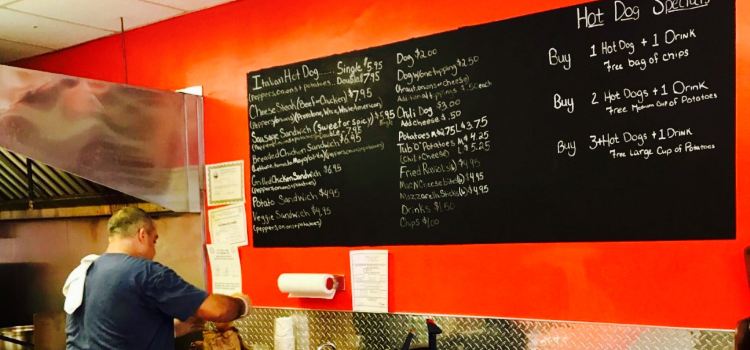 Italian Hot Dog ..... Single $5.95
(peppers, onions + potatoes) Double $7.95
Cheese Steak (Beef or Chicken) $7.95
Sausage Sandwich (sweet or spicy) $5.95
Breaded Chicken Sandwich $6.95
Grilled Chicken Sandwich $6.95
(peppers, onions + potatoes)
Potato Sandwich $4.95
Veggie Sandwich $4.95
(peppers, onions + potatoes)
Dog $2.00
Dog w/one topping $2.50
(kraut, onions, or cheese)
Chili Dog $3.00
Add cheese $.50
Potatoes M $2.75 L $3.75
Tub O' Potatoes M $4.25
(Chili + Cheese) L $5.25
Fried Ravioli $4.95
Mac N Cheese bites $4.95
Mozzarella Sticks $4.95
Drinks $1.50
Chips $1.00
Hot Dog Specials
Buy 1 Hot Dog + 1 Drink
Free bag of chips
Buy 2 Hot Dogs + 1 Drink
Free Medium Cup of Potatoes
Buy 3+ Hot Dogs + 1 Drink
Free Large Cup of Potatoes